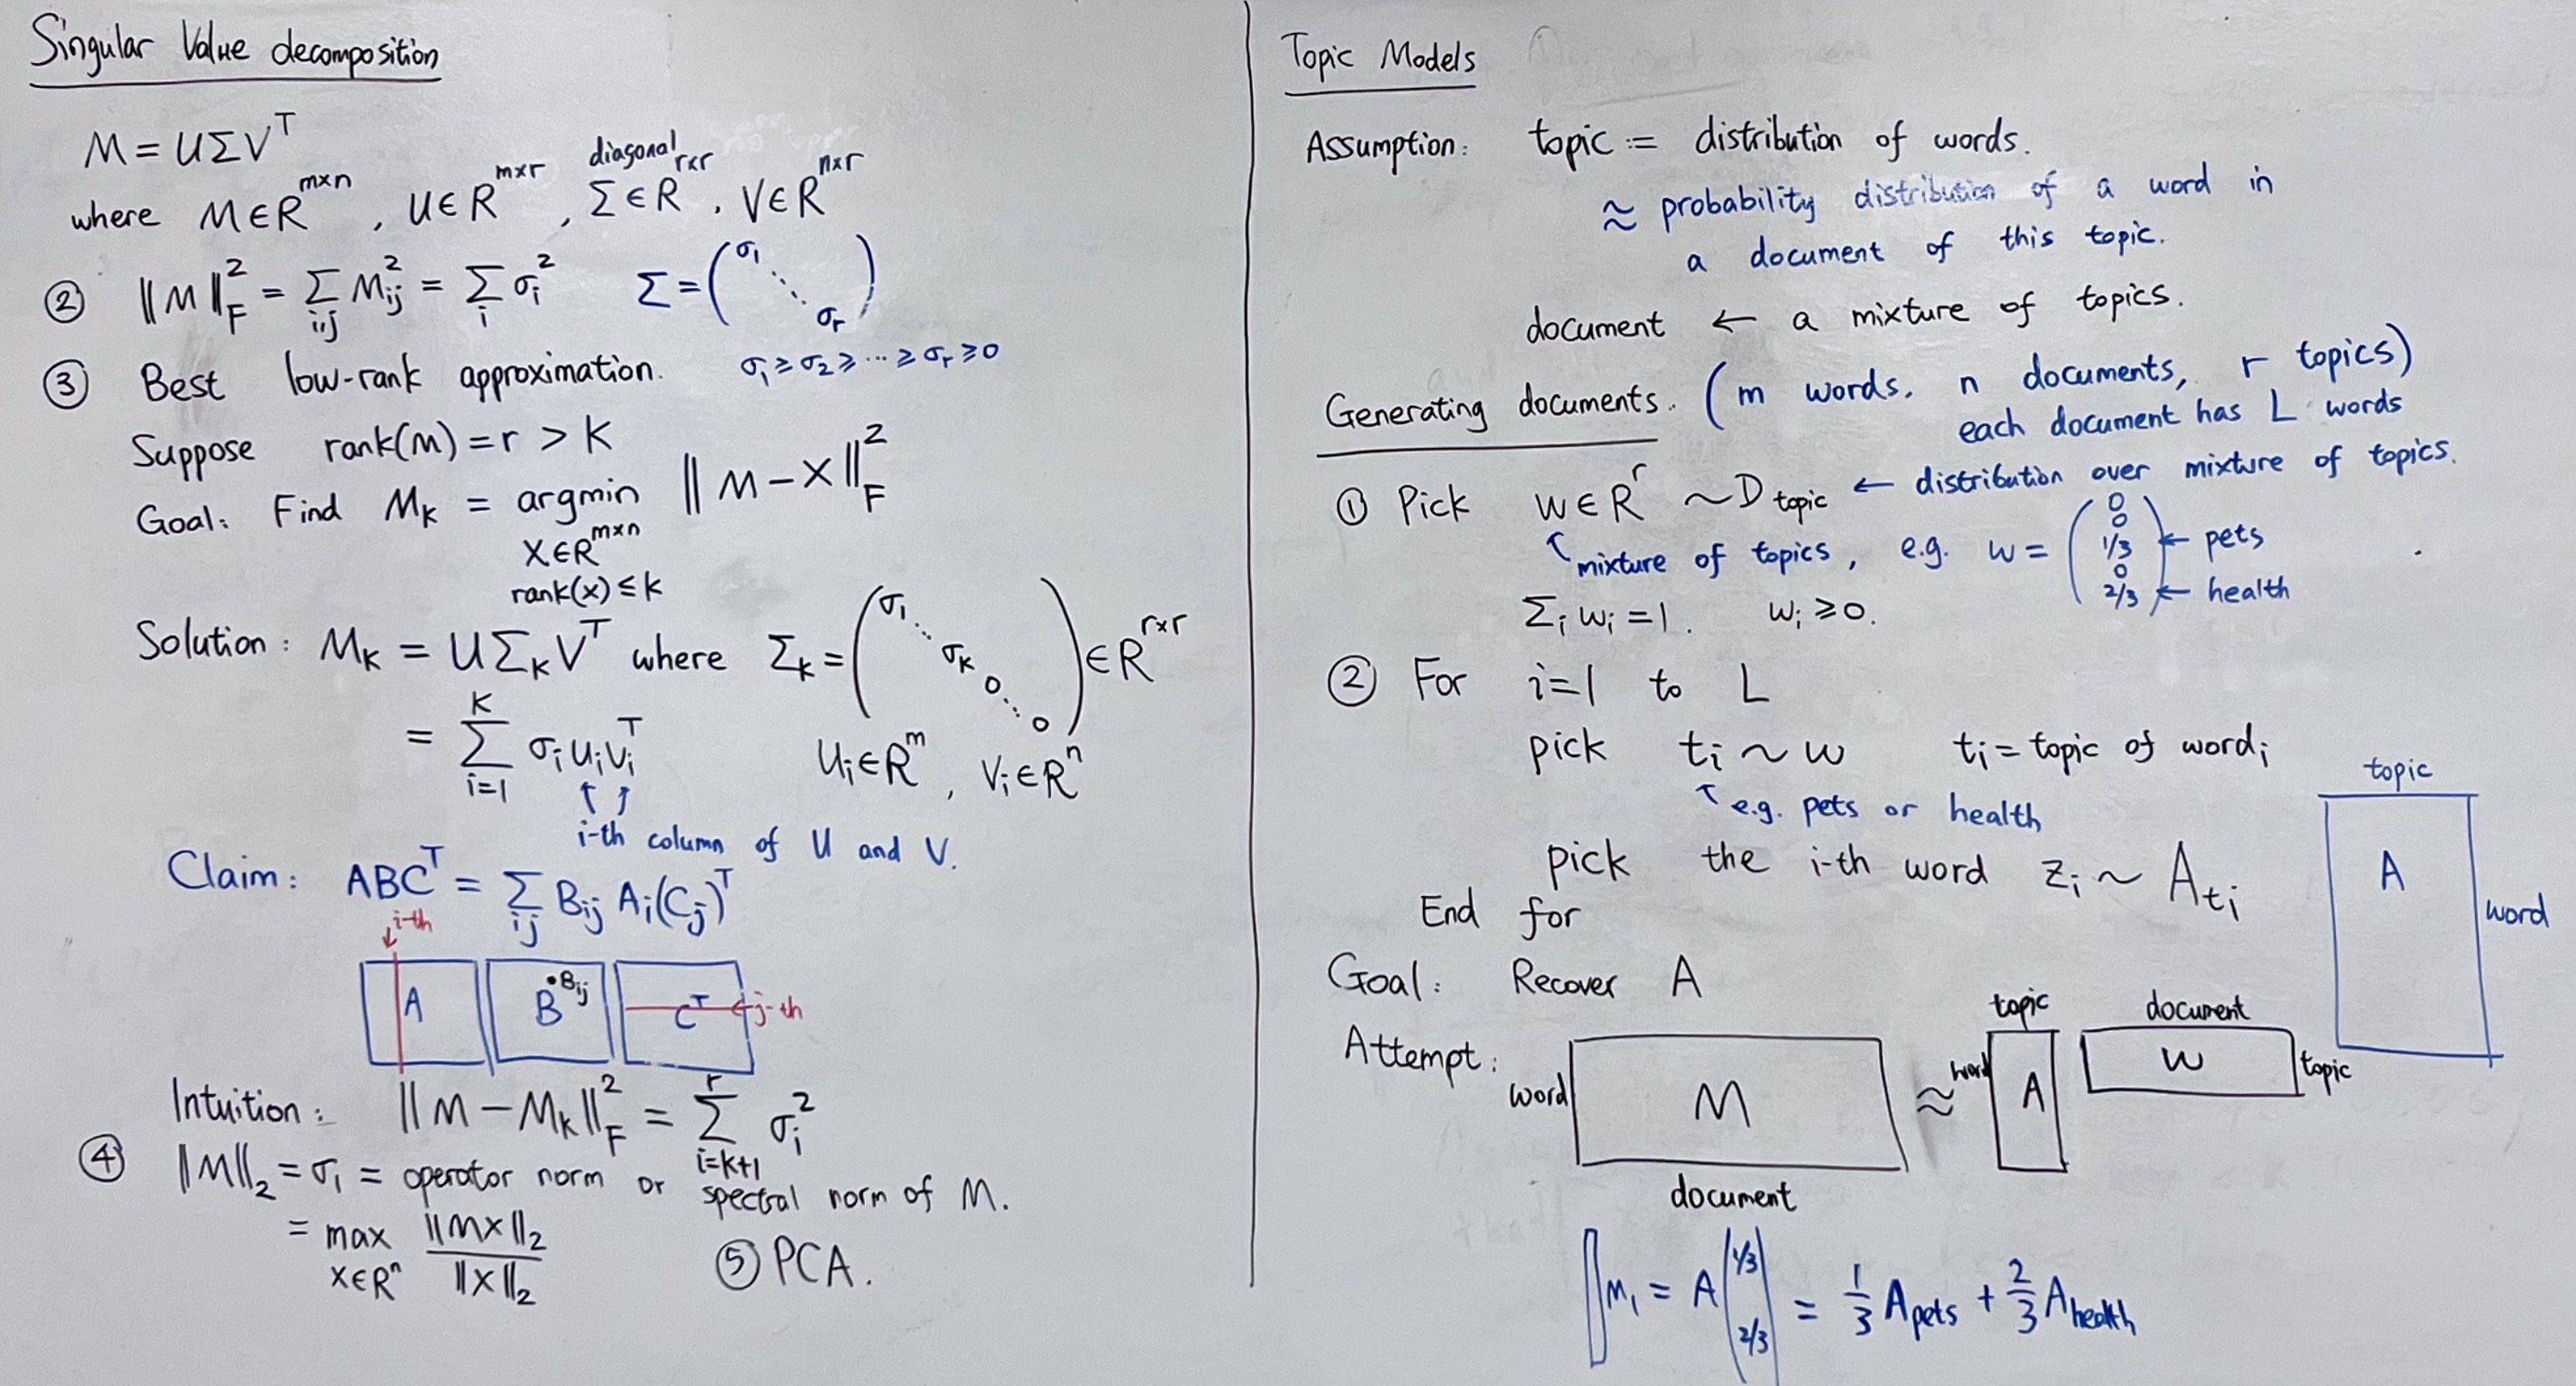 Singular Value decomposition
M = UΣV^T
where M∈R^{m×n}, U∈R^{m×r}, diagonal Σ∈R^{r×r}, V∈R^{n×r}
② ‖M‖_F^2 = Σ_{i,j} M_{ij}^2 = Σ_i σ_i^2   Σ = (σ_1 ⋱ σ_r)
③ Best low-rank approximation.   σ_1 ≥ σ_2 ≥ ⋯ ≥ σ_r ≥ 0
Suppose rank(M) = r > k
Goal: Find M_k = argmin ‖M − X‖_F^2
X∈R^{m×n}
rank(x) ≤ k
Solution: M_k = UΣ_kV^T where Σ_k = (σ_1 ⋱ σ_k 0 ⋱ 0) ∈ R^{r×r}
= Σ_{i=1}^{k} σ_i u_i v_i^T   u_i∈R^m, v_i∈R^n
↑ ↑
i-th column of U and V.
Claim: ABC^T = Σ_{ij} B_{ij} A_i(C_j)^T
↓ i-th
A   B •B_{ij}   C^T ← j-th
Intuition: ‖M − M_k‖_F^2 = Σ_{i=k+1}^{r} σ_i^2
④ ‖M‖_2 = σ_1 = operator norm or spectral norm of M.
= max_{x∈R^n} ‖Mx‖_2 / ‖x‖_2   ⑤ PCA.
Topic Models
Assumption: topic := distribution of words.
≈ probability distribution of a word in
a document of this topic.
document ← a mixture of topics.
Generating documents. (m words, n documents, r topics)
each document has L words
① Pick w∈R^r ~ D_topic ← distribution over mixture of topics.
↑ mixture of topics, e.g. w = (0 0 1/3 0 2/3) ← pets ← health
Σ_i w_i = 1.   w_i ≥ 0.
② For i=1 to L
pick t_i ~ w   t_i = topic of word_i
↑ e.g. pets or health
pick the i-th word z_i ~ A_{t_i}
End for
topic
A
word
Goal: Recover A
Attempt: word M document ≈ word A topic   document W topic
M_1 = A (1/3 2/3) = 1/3 A_pets + 2/3 A_health